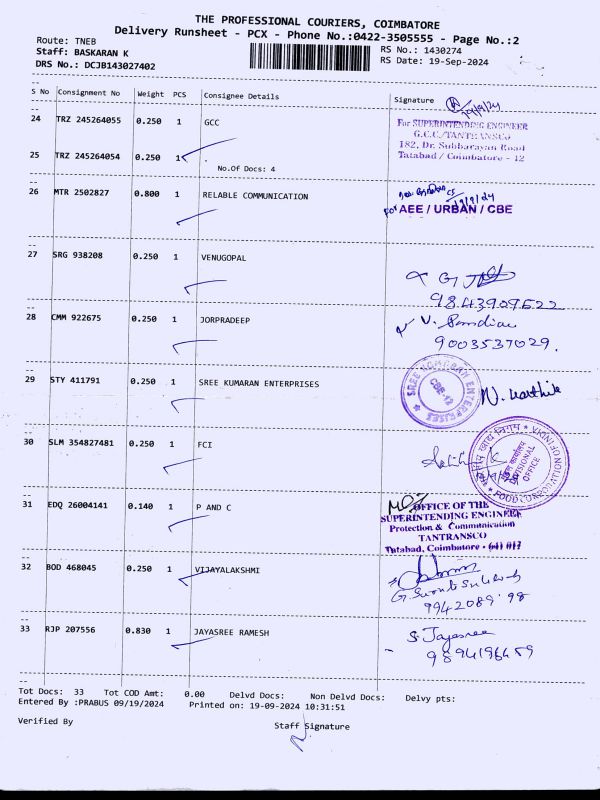 THE PROFESSIONAL COURIERS, COIMBATORE
Delivery Runsheet - PCX - Phone No.:0422-3505555 - Page No.:2
Route: TNEB
RS No.: 1430274
Staff: BASKARAN K
RS Date: 19-Sep-2024
DRS No.: DCJB143027402
S No Consignment No Weight PCS Consignee Details Signature
24 TRZ 245264055 0.250 1 GCC
For SUPERINTENDING ENGINEER
G.C.C/TANTRANSCO
182, Dr. Subbarayan Road
Tatabad / Coimbatore - 12
25 TRZ 245264054 0.250 1
No.Of Docs: 4
26 MTR 2502827 0.800 1 RELABLE COMMUNICATION
19/9/24
For AEE / URBAN / CBE
27 SRG 938208 0.250 1 VENUGOPAL
9843909622
28 CMM 922675 0.250 1 JORPRADEEP
V. Pandian
9003537029.
29 STY 411791 0.250 1 SREE KUMARAN ENTERPRISES
SREE KUMARAN ENTERPRISES
CBE-12
N. Karthik
30 SLM 354827481 0.250 1 FCI
FOOD CORPORATION OF INDIA
DIVISIONAL
OFFICE
31 EDQ 26004141 0.140 1 P AND C
OFFICE OF THE
SUPERINTENDING ENGINEER
Protection & Communication
TANTRANSCO
Tatabad, Coimbatore - 641 012
32 BOD 468045 0.250 1 VIJAYALAKSHMI
9942089198
33 RJP 207556 0.830 1 JAYASREE RAMESH
S. Jayasree
9894196659
Tot Docs: 33 Tot COD Amt: 0.00 Delvd Docs: Non Delvd Docs: Delvy pts:
Entered By :PRABUS 09/19/2024 Printed on: 19-09-2024 10:31:51
Verified By
Staff Signature